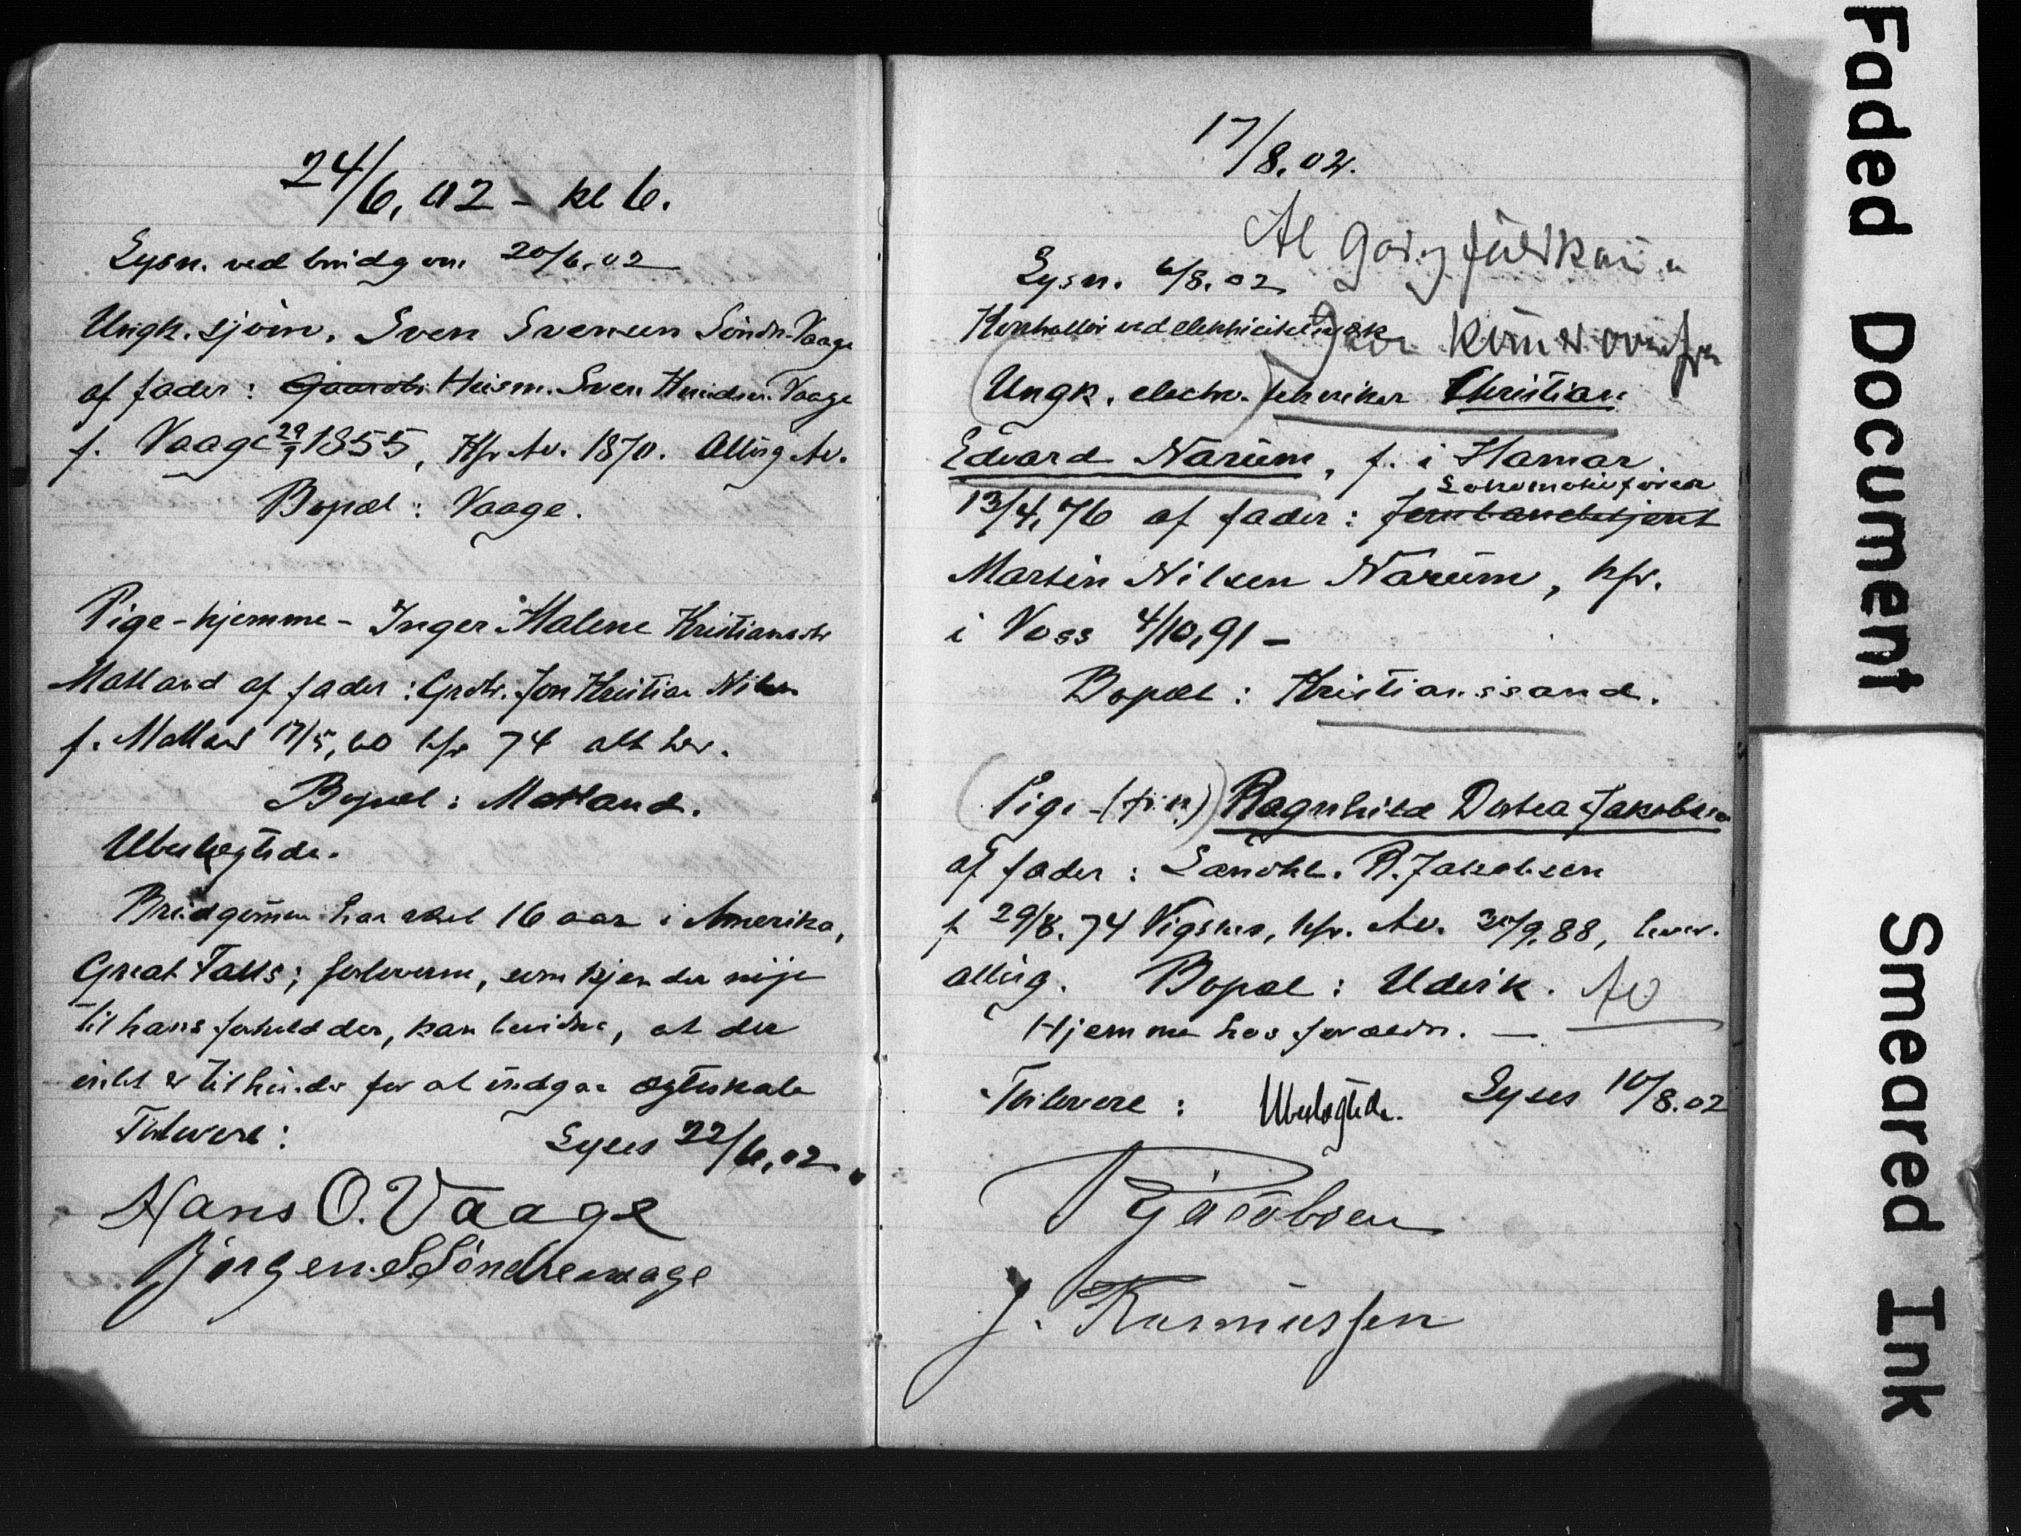 24/6, 02 - kl 6.
Lysn. ved brudgom 20/6, 02
Ungk. sjöm. Sven Svensen Söndr. Vaage
af fader: Gaardbr. Husm. Sven Vaage
f. Vaage 29/9 1855, Kfr. Av. 1870. Alting Av.
Bopæl: Vaage.
Pige - hjemme - Inger Malene Kristiansdtr
Matland af fader: Grdbr. Jon Kristian Nilsen
f. Matland 17/5, 60 kfr 74 alt her.
Bopæl: Matland.
Ubeslegtede.
Brudgommen har været 16 aar i Amerika,
Great Falls; forloverne, som kjender nöje
til hans forhold der, kan bevidne, at der
intet er til hinder for at indgaa ægteskab
Forlovere: Lyses 22/6, 02.
Hans O. Vaage
Börgen. S Söndrevaage
17/8. 02.
At
Lysn. 6/8. 02
Kontrollör ved elektricitetsverk
kun
Ungk. electro. tekniker Christian
Edvard Narum, f. i Hamar.
Lokomotivförer
13/4, 76 af fader: Jernbanebetjent
Martin Nilsen Narum, kfr.
i Voss 4/10, 91 -
Bopæl: Kristianssand.
Pige - Ragnhild Dortea Jakobsen
af fader: Landhl. R. Jakobsen
f 29/8. 74 Vigsnes, kfr. Av. 30/9, 88,
alting. Bopæl: Udvik. Av
Hjemme hos forældr. -
Forlovere: Ubeslegtede. Lyses 10/8. 02
R Jacobsen
J. Rasmussen
Faded Document
Smeared Ink